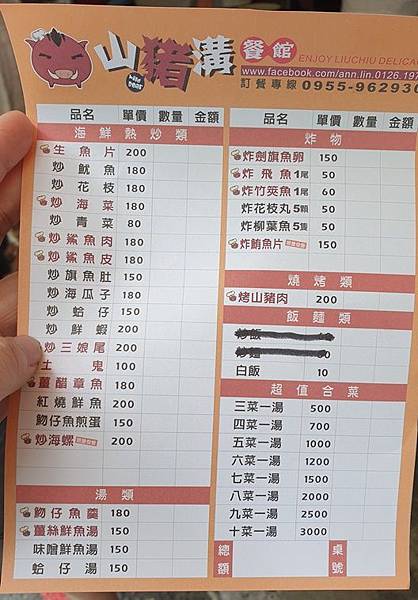 山豬溝 餐館
WILD BOAR
ENJOY LIUCHIU DELICAC
www.facebook.com/ann.lin.0126.19
訂餐專線 0955-962930
品名 單價 數量 金額
海鮮熱炒類
生魚片 200
炒魷魚 180
炒花枝 180
炒海菜 180
炒青菜 80
炒鯊魚肉 180
炒鯊魚皮 180
炒旗魚肚 150
炒海瓜子 180
炒蛤仔 150
炒鮮蝦 200
炒三娘尾 200
土鬼 100
薑醋章魚 180
紅燒鮮魚 200
魩仔魚煎蛋 150
炒海螺 200
湯類
魩仔魚羹 180
薑絲鮮魚湯 150
味噌鮮魚湯 150
蛤仔湯 150
品名 單價 數量 金額
炸物
炸劍旗魚卵 150
炸飛魚1尾 50
炸竹筴魚1尾 60
炸花枝丸5顆 50
炸柳葉魚5隻 50
炸鮪魚片 150
燒烤類
烤山豬肉 200
飯麵類
炒飯
炒麵
白飯 10
超值合菜
三菜一湯 500
四菜一湯 700
五菜一湯 1000
六菜一湯 1200
七菜一湯 1500
八菜一湯 2000
九菜一湯 2500
十菜一湯 3000
總額 桌號